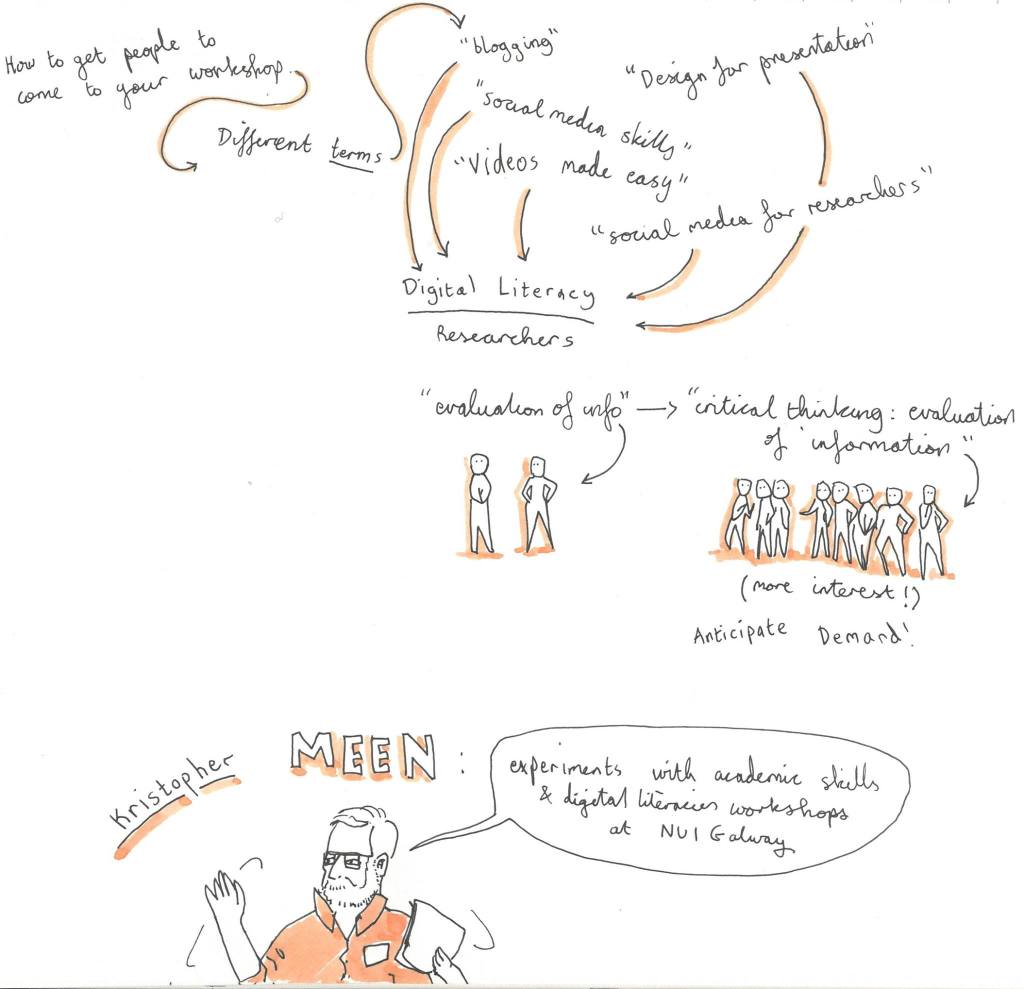 How to get people to
come to your workshop.
Different terms
"blogging"
"social media skills"
"Videos made easy"
"Design for presentation"
"social media for researchers"
Digital Literacy
Researchers
"evaluation of info" → "critical thinking: evaluation
of information"
(more interest!)
Anticipate Demand!
Kristopher
MEEN:
experiments with academic skills
& digital literacies workshops
at NUI Galway